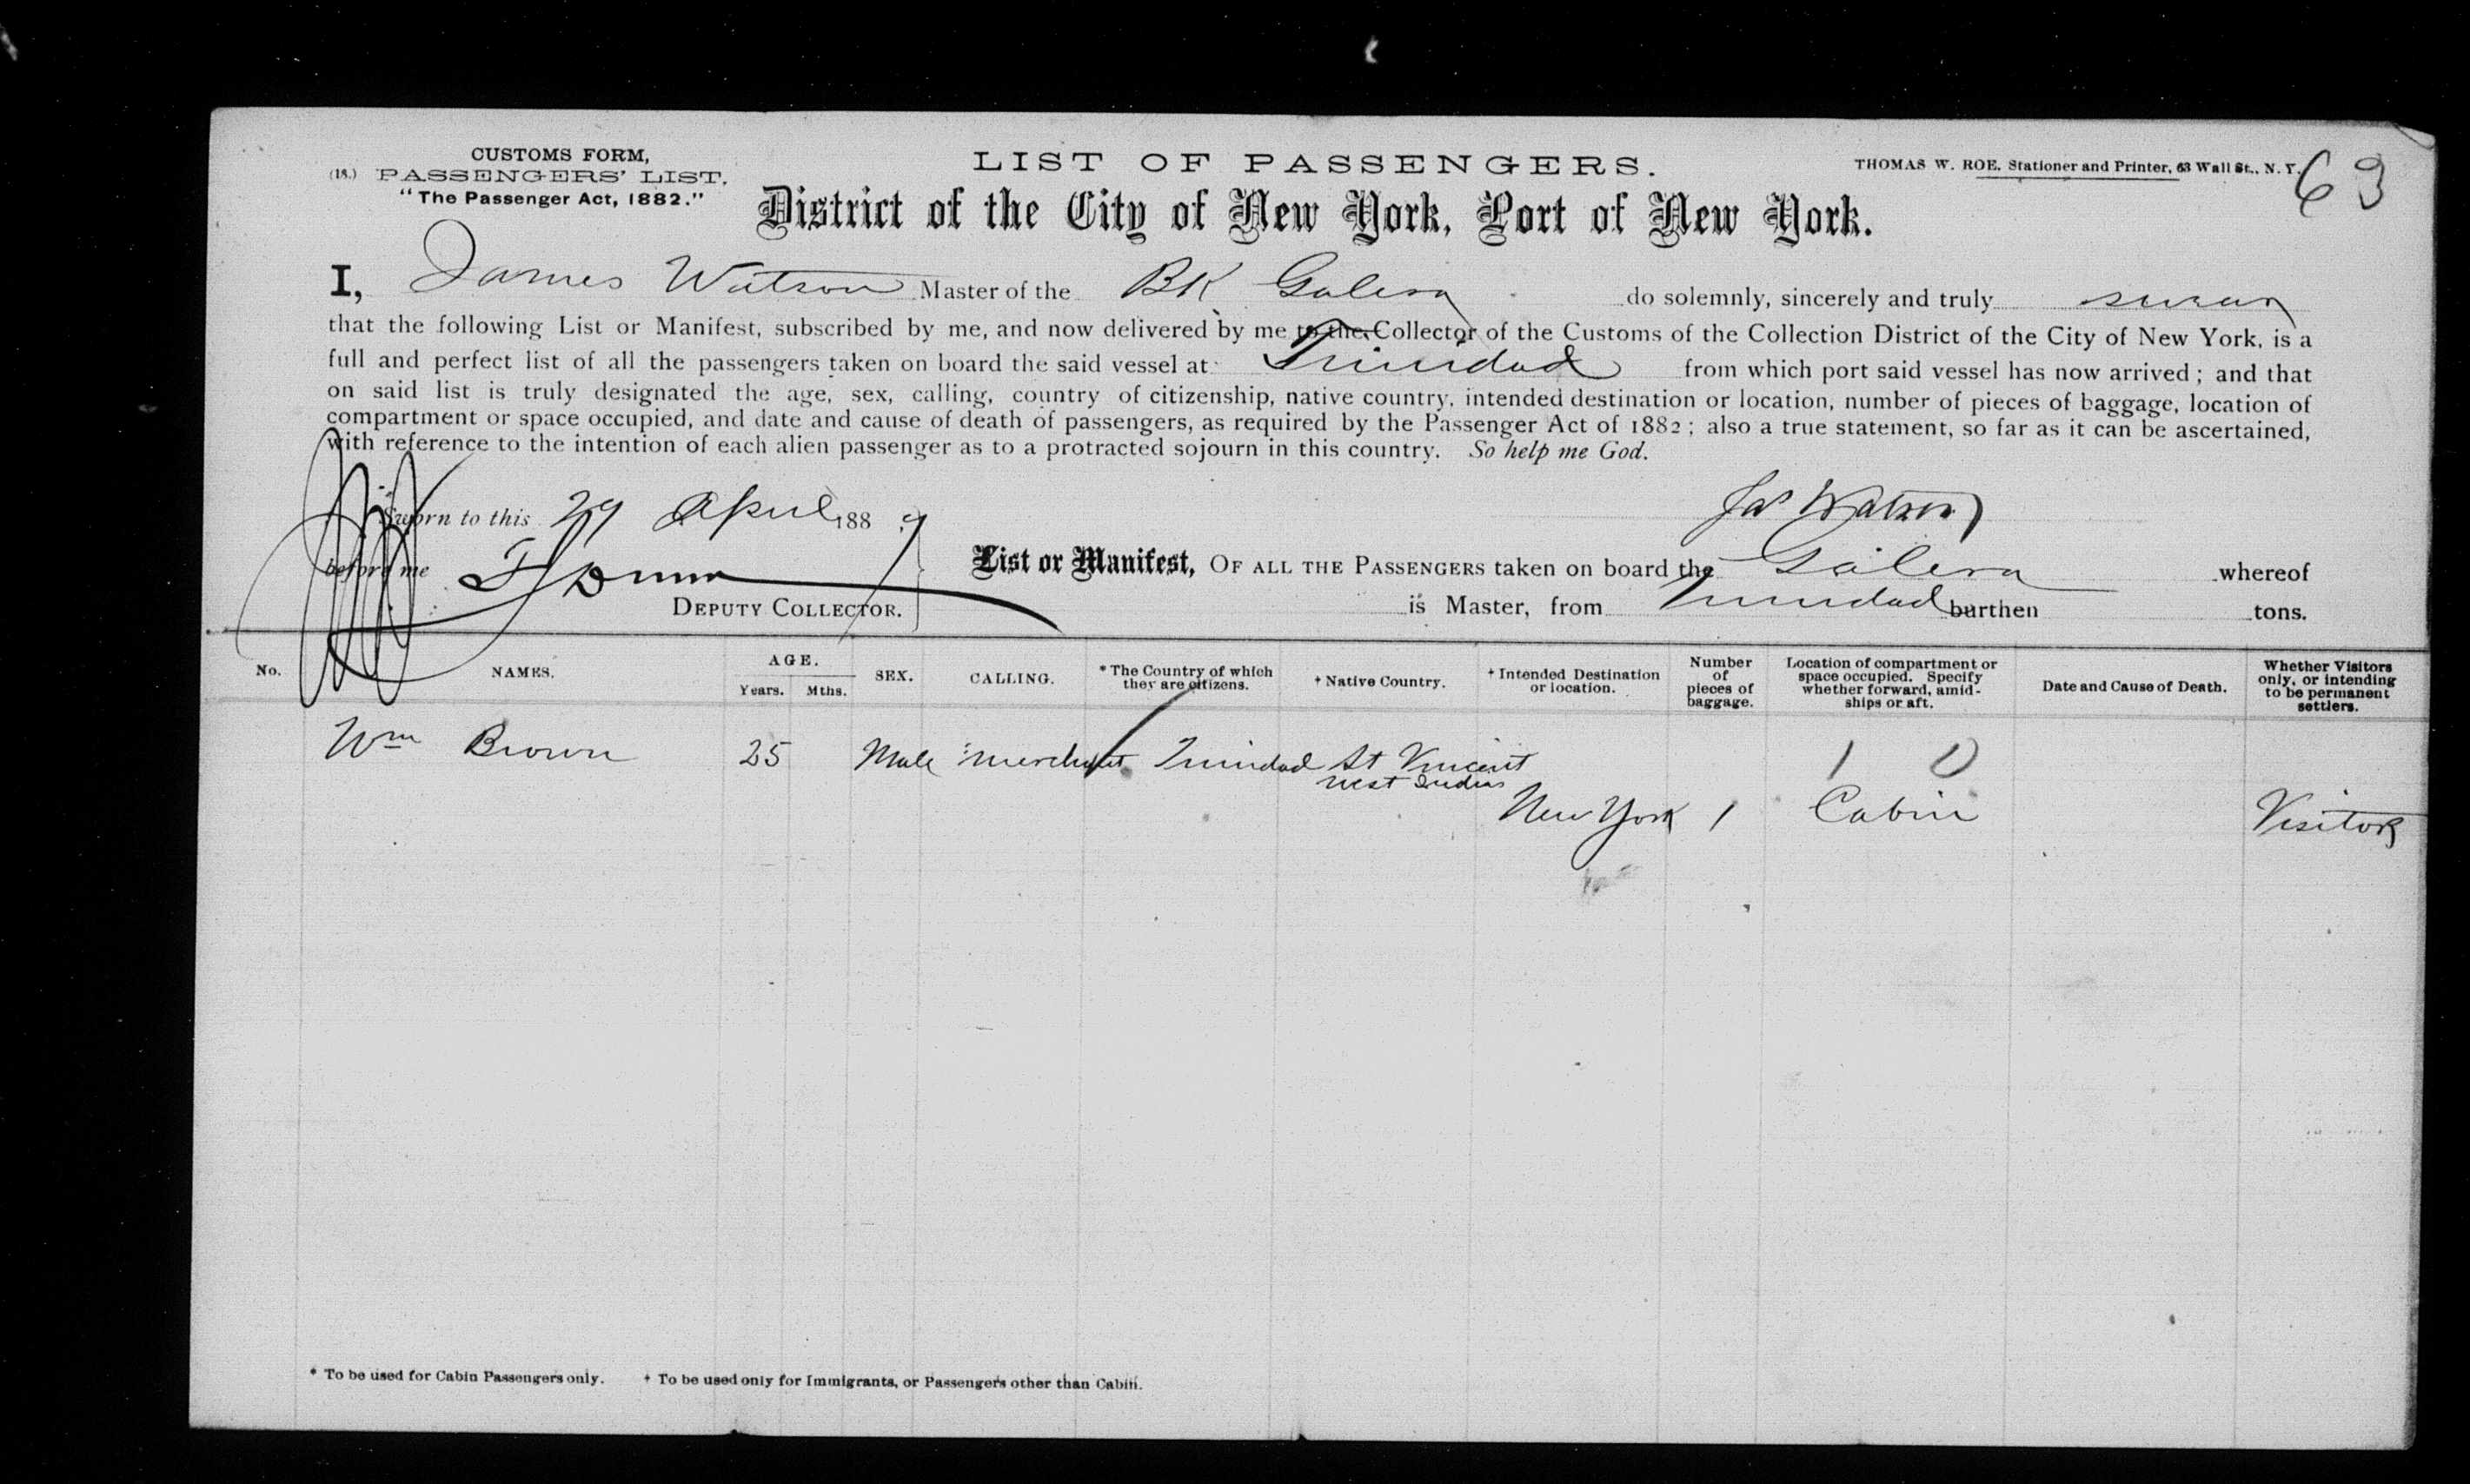 CUSTOMS FORM,
(18.) PASSENGERS' LIST.
"The Passenger Act, 1882."
LIST OF PASSENGERS.
THOMAS W. ROE, Stationer and Printer, 63 Wall St., N. Y.
63
District of the City of New York, Port of New York.
I, James Watson Master of the BK Galera do solemnly, sincerely and truly swear
that the following List or Manifest, subscribed by me, and now delivered by me to the Collector of the Customs of the Collection District of the City of New York, is a
full and perfect list of all the passengers taken on board the said vessel at Trinidad from which port said vessel has now arrived; and that
on said list is truly designated the age, sex, calling, country of citizenship, native country, intended destination or location, number of pieces of baggage, location of
compartment or space occupied, and date and cause of death of passengers, as required by the Passenger Act of 1882; also a true statement, so far as it can be ascertained,
with reference to the intention of each alien passenger as to a protracted sojourn in this country. So help me God.
Sworn to this 29 April 1889
Jas Watson
before me
DEPUTY COLLECTOR.
List or Manifest, OF ALL THE PASSENGERS taken on board the Galera whereof
is Master, from Trinidad burthen tons.
No. NAMES. AGE. Years. Mths. SEX. CALLING. * The Country of which they are citizens. + Native Country. + Intended Destination or location. Number of pieces of baggage. Location of compartment or space occupied. Specify whether forward, amid-ships or aft. Date and Cause of Death. Whether Visitors only, or intending to be permanent settlers.
Wm Brown 25 Male merchant Trinidad St Vincent 1 0
West Indies
New York 1 Cabin Visitor
* To be used for Cabin Passengers only. + To be used only for Immigrants, or Passengers other than Cabin.